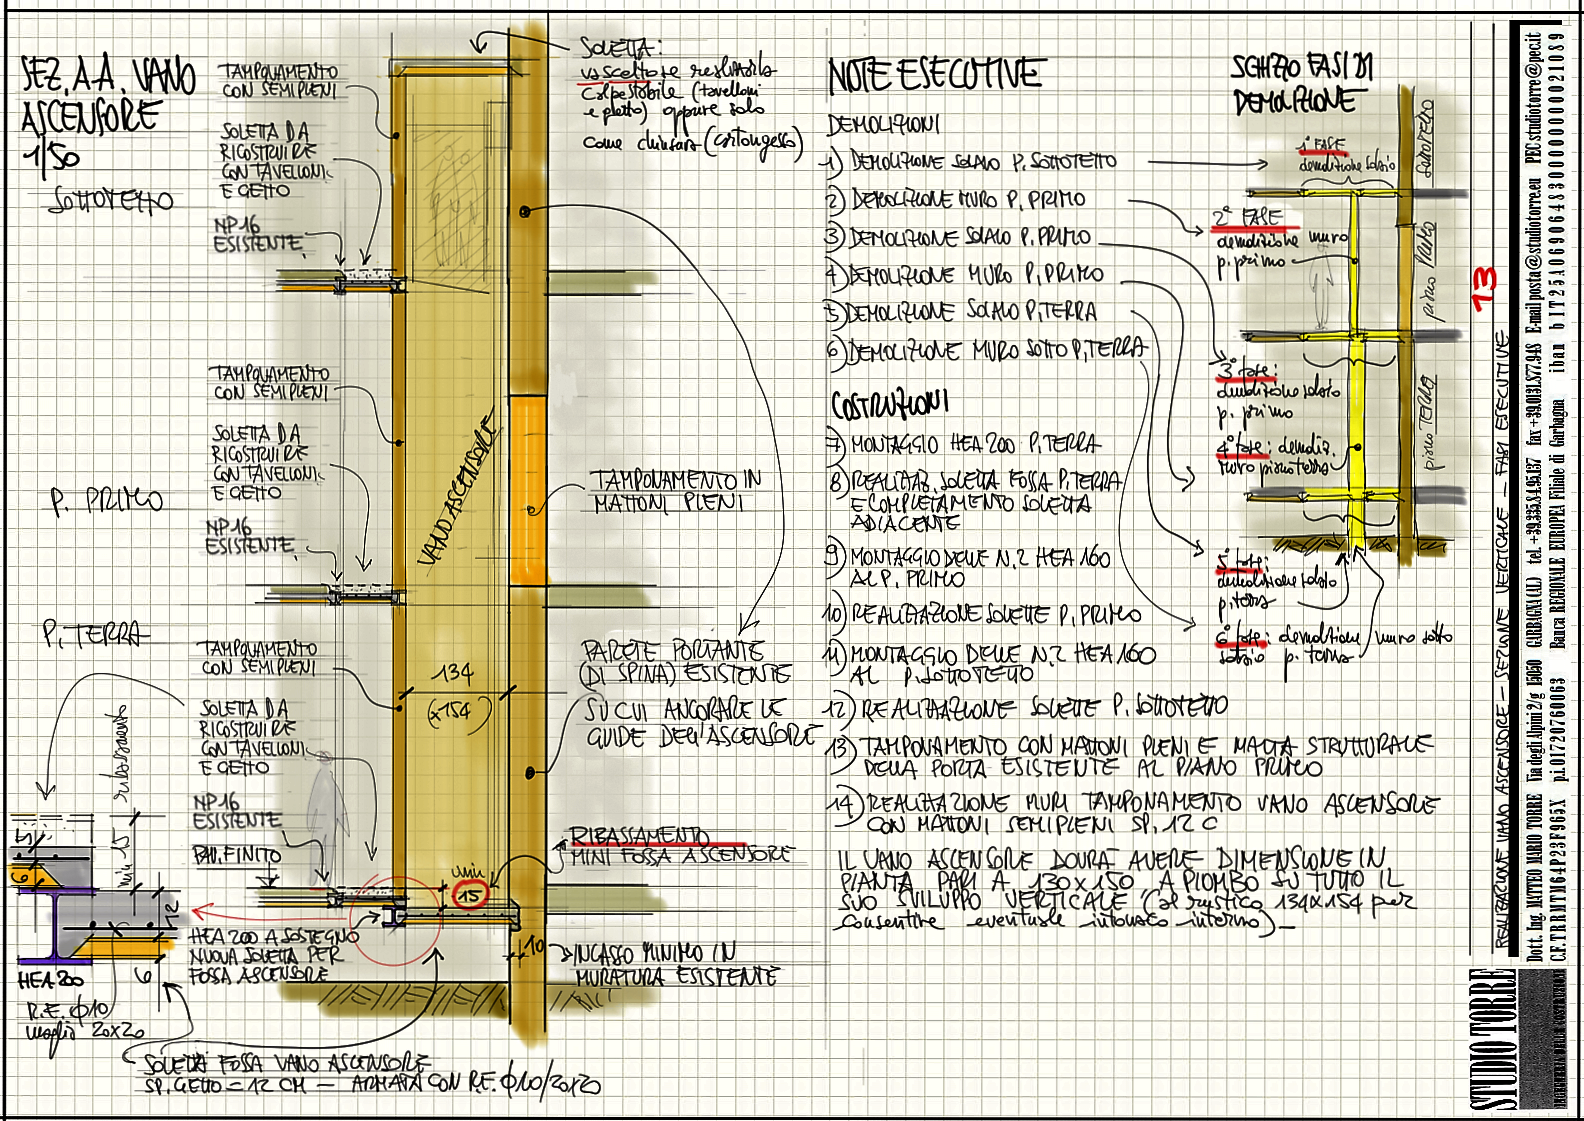 SEZ. A.A. VANO
ASCENSORE
1/50
SOTTOTETTO
TAMPONAMENTO
CON SEMIPIENI
SOLETTA DA
RICOSTRUIRE
CON TAVELLONI
E GETTO
NP16
ESISTENTE
SOLETTA:
calpestabile (tavelloni
e getto) oppure solo
come chiusura (cartongesso)
TAMPONAMENTO
CON SEMIPIENI
SOLETTA DA
RICOSTRUIRE
CON TAVELLONI
E GETTO
P. PRIMO
NP16
ESISTENTE
VANO ASCENSORE
TAMPONAMENTO IN
MATTONI PIENI
P. TERRA
TAMPONAMENTO
CON SEMIPIENI
SOLETTA DA
RICOSTRUIRE
CON TAVELLONI
E GETTO
NP16
ESISTENTE
PAV. FINITO
134
(x154)
PARETE PORTANTE
(DI SPINA) ESISTENTE
SU CUI ANCORARE LE
GUIDE DELL'ASCENSORE
RIBASSAMENTO
MINI FOSSA ASCENSORE
min
15
10
INCASSO MINIMO IN
MURATURA ESISTENTE
HEA 200 A SOSTEGNO
NUOVA SOLETTA PER
FOSSA ASCENSORE
ribassamento
min 15
5
6
12
6
HEA 200
R.E. φ10
maglia 20x20
SOLETTA FOSSA VANO ASCENSORE
SP. GETTO = 12 CM — ARMATA CON R.E. φ10/20x20
NOTE ESECUTIVE
DEMOLIZIONI
1) DEMOLIZIONE SOLAIO P. SOTTOTETTO
2) DEMOLIZIONE MURO P. PRIMO
3) DEMOLIZIONE SOLAIO P. PRIMO
4) DEMOLIZIONE MURO P. PRIMO
5) DEMOLIZIONE SOLAIO P. TERRA
6) DEMOLIZIONE MURO SOTTO P. TERRA
COSTRUZIONI
7) MONTAGGIO HEA 200 P. TERRA
8) REALIZZAZ. SOLETTA FOSSA P. TERRA
E COMPLETAMENTO SOLETTA
ADIACENTE
9) MONTAGGIO DELLE N.2 HEA 160
AL P. PRIMO
10) REALIZZAZIONE SOLETTE P. PRIMO
11) MONTAGGIO DELLE N.2 HEA 160
AL P. SOTTOTETTO
12) REALIZZAZIONE SOLETTE P. SOTTOTETTO
13) TAMPONAMENTO CON MATTONI PIENI E MALTA STRUTTURALE
DELLA PORTA ESISTENTE AL PIANO PRIMO
14) REALIZZAZIONE MURI TAMPONAMENTO VANO ASCENSORE
CON MATTONI SEMIPIENI SP. 12 C
IL VANO ASCENSORE DOVRÀ AVERE DIMENSIONE IN
PIANTA PARI A 130x150 A PIOMBO SU TUTTO IL
SUO SVILUPPO VERTICALE (al rustico 134x154 per
consentire eventuale intonaco interno)
SCHIZZO FASI DI
DEMOLIZIONE
1° FASE
demolizione solaio
2° FASE
demolizione muro
p. primo
3° fase:
demolizione solaio
p. primo
4° fase: demoliz.
muro piano terra
5° fase:
demolizione solaio
p. terra
6° fase: demolizione muro sotto
solaio p. terra
sottotetto
piano PRIMO
piano TERRA
13
REALIZZAZIONE VANO ASCENSORE - SEZIONE VERTICALE - FASI ESECUTIVE
STUDIO TORRE
INGEGNERIA DELLE COSTRUZIONI
Dott. Ing. MATTEO MARIO TORRE Via degli Alpini 2/g 15050 GARBAGNA (AL) tel. +39.335.84.95.137 fax +39.0131.877.948 E-mail posta@studiotorre.eu PEC studiotorre@pec.it
C.F. TRRMTM64P23F965X p.i. 01720760063 Banca REGIONALE EUROPEA Filiale di Garbagna iban